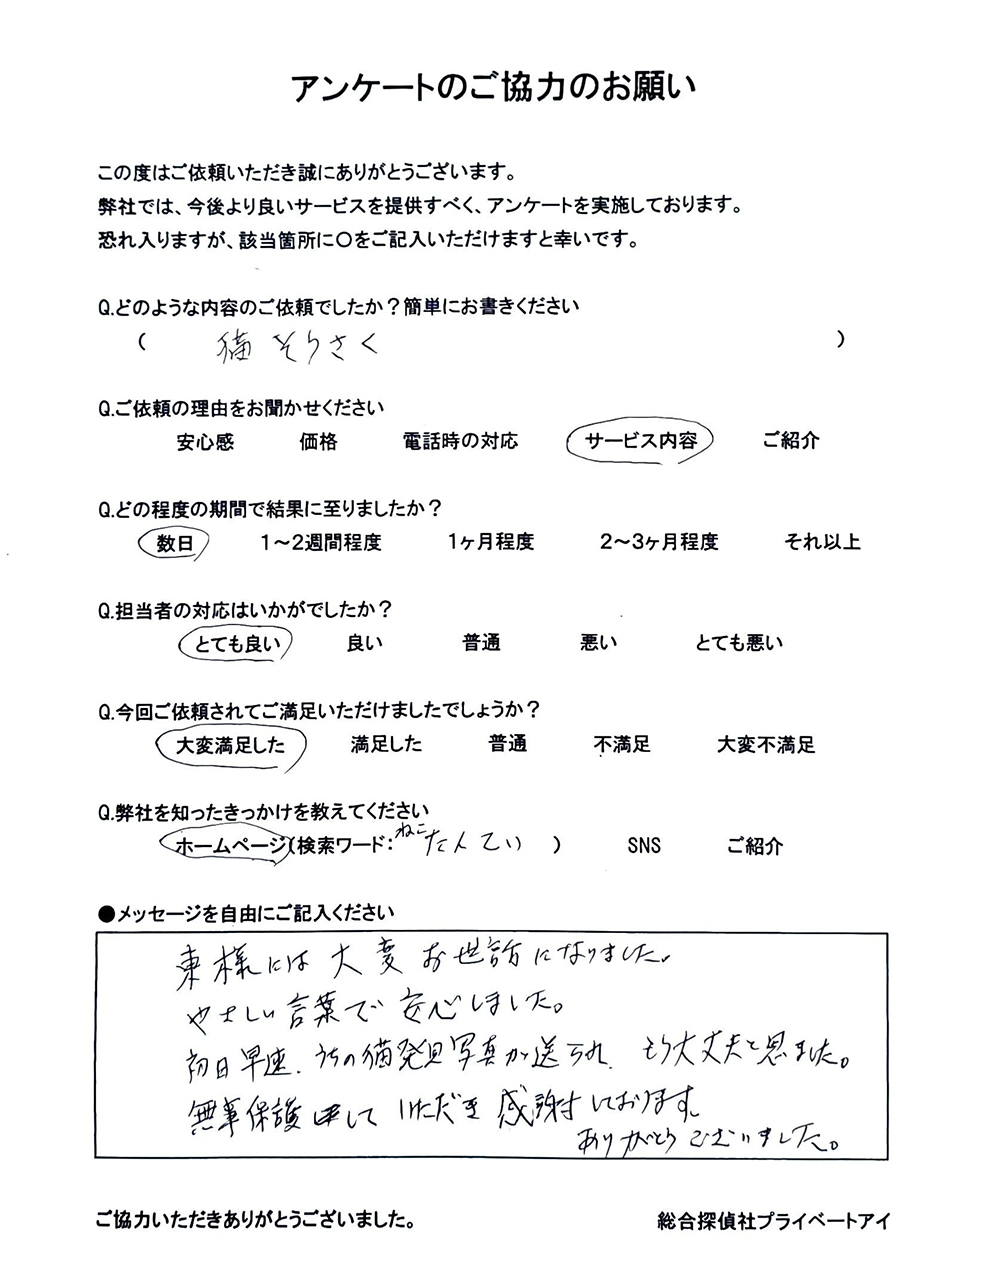 アンケートのご協力のお願い
この度はご依頼いただき誠にありがとうございます。
弊社では、今後より良いサービスを提供すべく、アンケートを実施しております。
恐れ入りますが、該当箇所に〇をご記入いただけますと幸いです。
Q.どのような内容のご依頼でしたか？簡単にお書きください
（ 猫 そうさく ）
Q.ご依頼の理由をお聞かせください
安心感 価格 電話時の対応 サービス内容 ご紹介
Q.どの程度の期間で結果に至りましたか？
数日 1～2週間程度 1ヶ月程度 2～3ヶ月程度 それ以上
Q.担当者の対応はいかがでしたか？
とても良い 良い 普通 悪い とても悪い
Q.今回ご依頼されてご満足いただけましたでしょうか？
大変満足した 満足した 普通 不満足 大変不満足
Q.弊社を知ったきっかけを教えてください
ホームページ（検索ワード：ねこたんてい ） SNS ご紹介
●メッセージを自由にご記入ください
東様には大変お世話になりました。
やさしい言葉で安心しました。
初日早速、うちの猫発見写真が送られ、もう大丈夫と思ました。
無事保護していただき感謝しております。
ありがとうございました。
ご協力いただきありがとうございました。
総合探偵社プライベートアイ